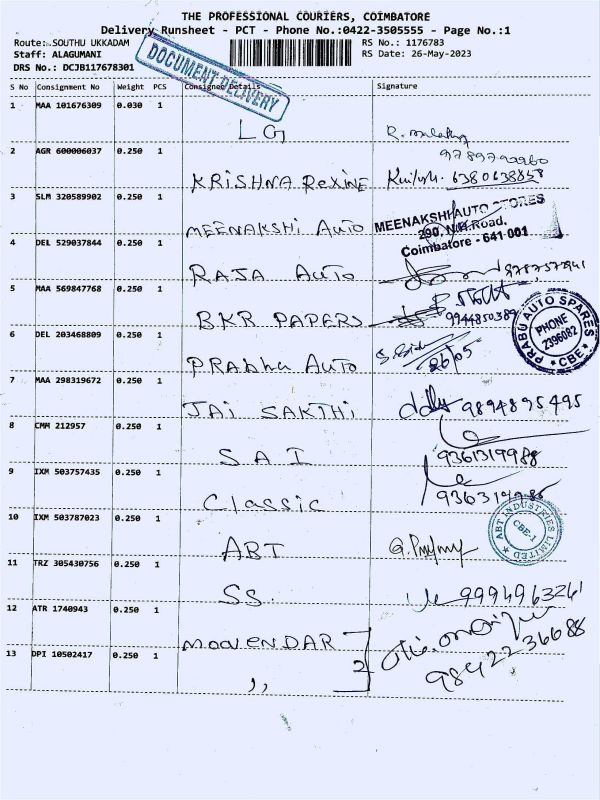 THE PROFESSIONAL COURIERS, COIMBATORE
Delivery Runsheet - PCT - Phone No.:0422-3505555 - Page No.:1
Route: SOUTHU UKKADAM
RS No.: 1176783
Staff: ALAGUMANI
RS Date: 26-May-2023
DRS No.: DCJB117678301
DOCUMENT DELIVERY
S No Consignment No Weight PCS Consignee Details Signature
1 MAA 101676309 0.030 1
LG
9789790960
2 AGR 600006037 0.250 1
KRISHNA RexINE 6380638858
3 SLM 320589902 0.250 1
MEENAKSHI Auto
MEENAKSHI AUTO STORES
290, N.H.Road,
Coimbatore - 641 001
4 DEL 529037844 0.250 1
RAJA Auto
5 MAA 569847768 0.250 1
BKR PAPERS 9944850389
6 DEL 203468809 0.250 1
PRAbhu AUTO 26/05
PRABU AUTO SPARES
PHONE
2396082
CBE
7 MAA 298319672 0.250 1
JAI SAKTHI 9894895495
8 CMM 212957 0.250 1
SAI 9361319988
9 IXM 503757435 0.250 1
Classic
10 IXM 503787023 0.250 1
ABT
ABT INDUSTRIES LIMITED
CBE-1
11 TRZ 305430756 0.250 1
SS. 9994963261
12 ATR 1740943 0.250 1
MOOVENDAR
2
9842236688
13 DPI 10502417 0.250 1
,,